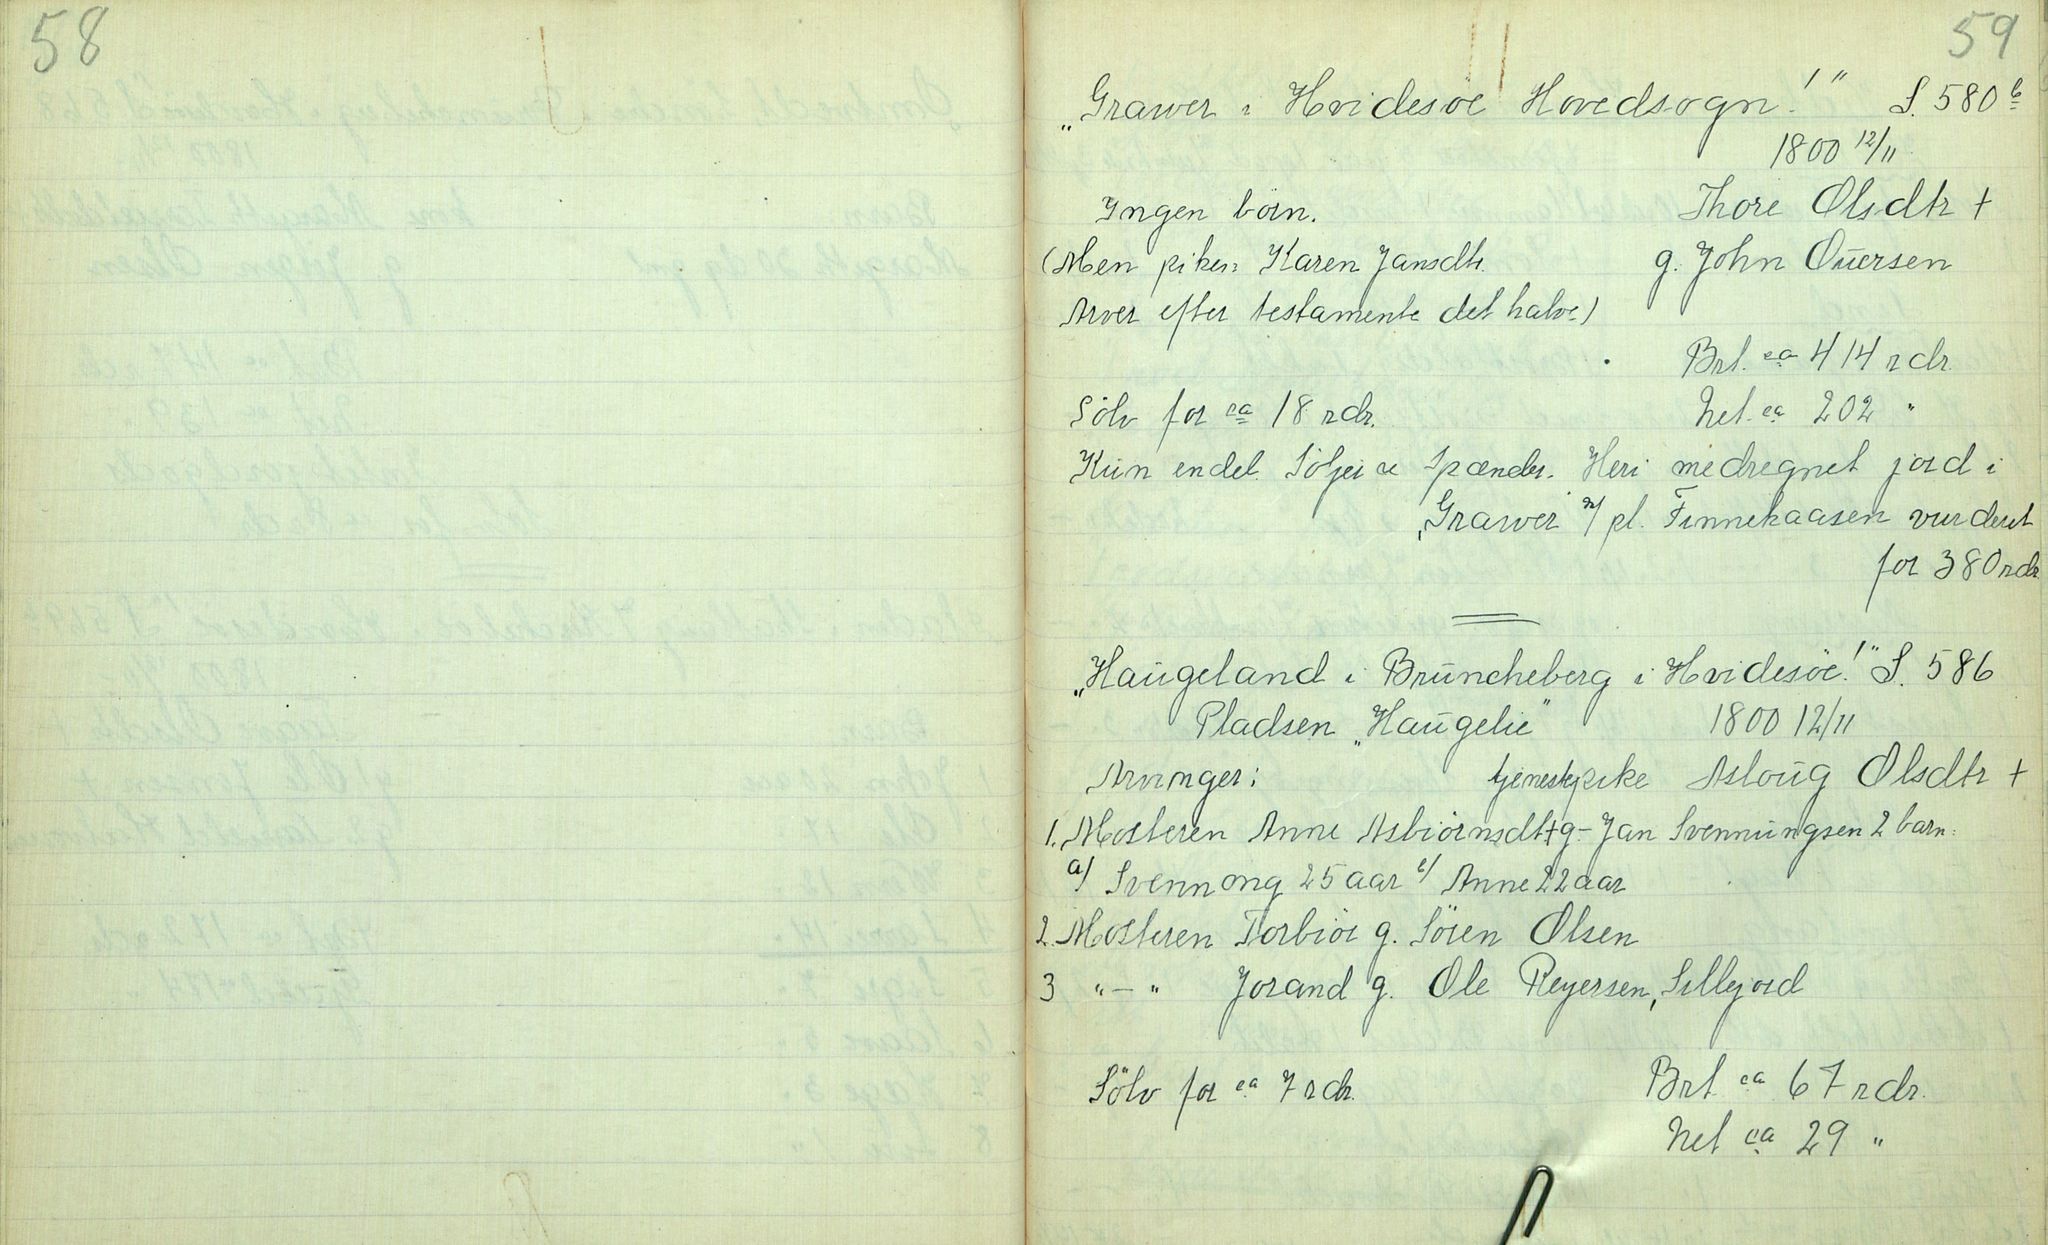 58
59
„Grawer i Hvidesöe Hovedsogn!" S. 580 b
1800 12/11
Ingen börn. Thore Olsdtr +
(Men piken Karen Jansdtr. g. John Ouersen
Arver efter testamente det halve)
Brt. ca 414 rdr.
Sölv for ca 18 rdr. Net. ca 202 "
Kun endel Söljer & Spænder. Heri medregnet jord i
„Grawer m/ pl. Finnekaasen vurderet
for 380 rdr
„Haugeland i Bruncheberg i Hvidesöe!" S. 586
Pladsen „Haugelie" 1800 12/11
Arvinger: tjenestepike Asloug Olsdtr +
1. Mosteren Anne Asbiörnsdtr + g. Jan Svennungsen 2 barn:
a/ Svennong 25 aar b/ Anne 22 aar
2. Mosteren Torbiör g. Sören Olsen
3 "—" Jorand g. Ole Reyersen, Sillejord
Sölv for ca 7 rdr. Brt ca 67 rdr.
Net ca 29 "